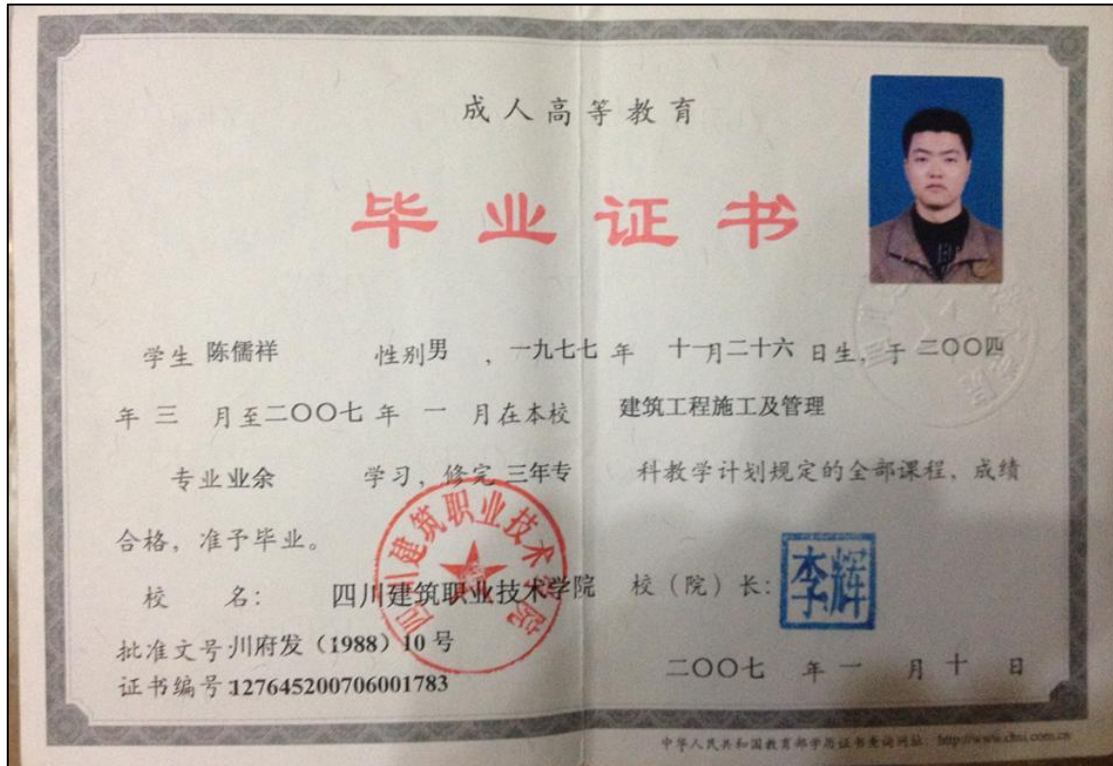 成人高等教育
毕业证书
学生 陈儒祥 性别 男 , 一九七七 年 十一月二十六 日生, 于 二〇〇四
年 三 月至二〇〇七 年 一 月在本校 建筑工程施工及管理
专业 业余 学习, 修完 三年专 科教学计划规定的全部课程, 成绩
合格, 准予毕业。
校 名: 四川建筑职业技术学院 校(院)长: 李辉
四川建筑职业技术学院
批准文号 川府发(1988)10 号
二〇〇七 年 一 月 十 日
证书编号:127645200706001783
中华人民共和国教育部学历证书查询网站: http://www.chsi.com.cn